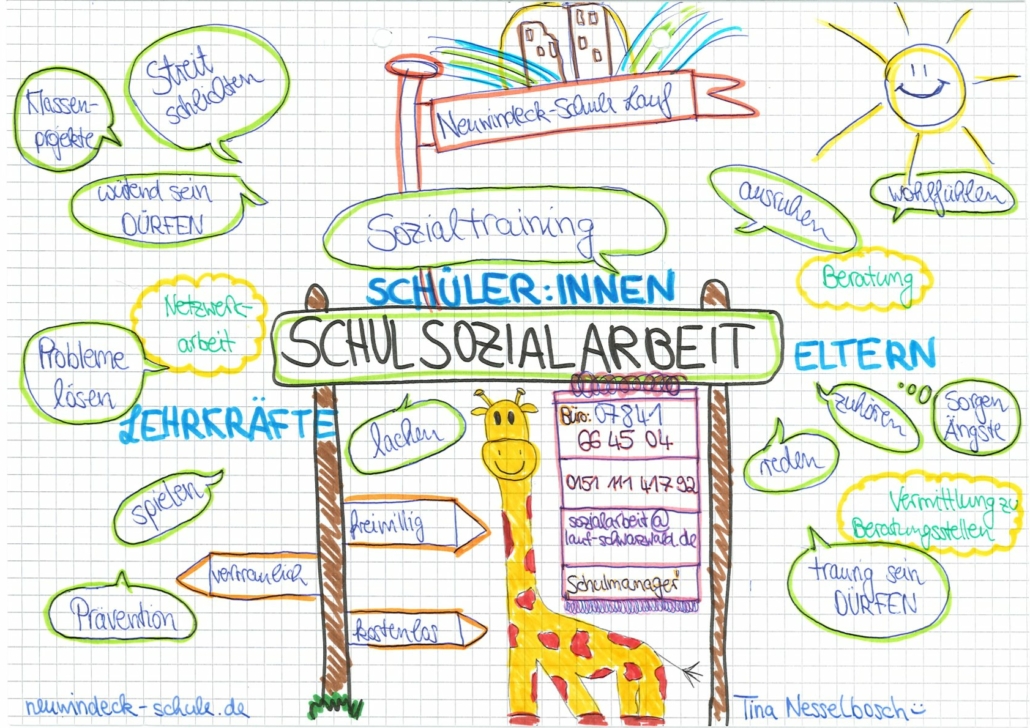 Klassen-
projekte
Streit
schlichten
wütend sein
DÜRFEN
Neuwindeck-Schule Lauf
Sozialtraining
ausruhen
wohlfühlen
Beratung
SCHÜLER:INNEN
Netzwerk-
arbeit
SCHULSOZIALARBEIT
ELTERN
Probleme
lösen
LEHRKRÄFTE
lachen
Büro: 07841
66 45 04
0151 111 417 92
sozialarbeit@
lauf-schwarzwald.de
Schulmanager
zuhören
Sorgen
Ängste
reden
spielen
freiwillig
vertraulich
kostenlos
Vermittlung zu
Beratungsstellen
traurig sein
DÜRFEN
Prävention
neuwindeck-schule.de
Tina Nesselbosch